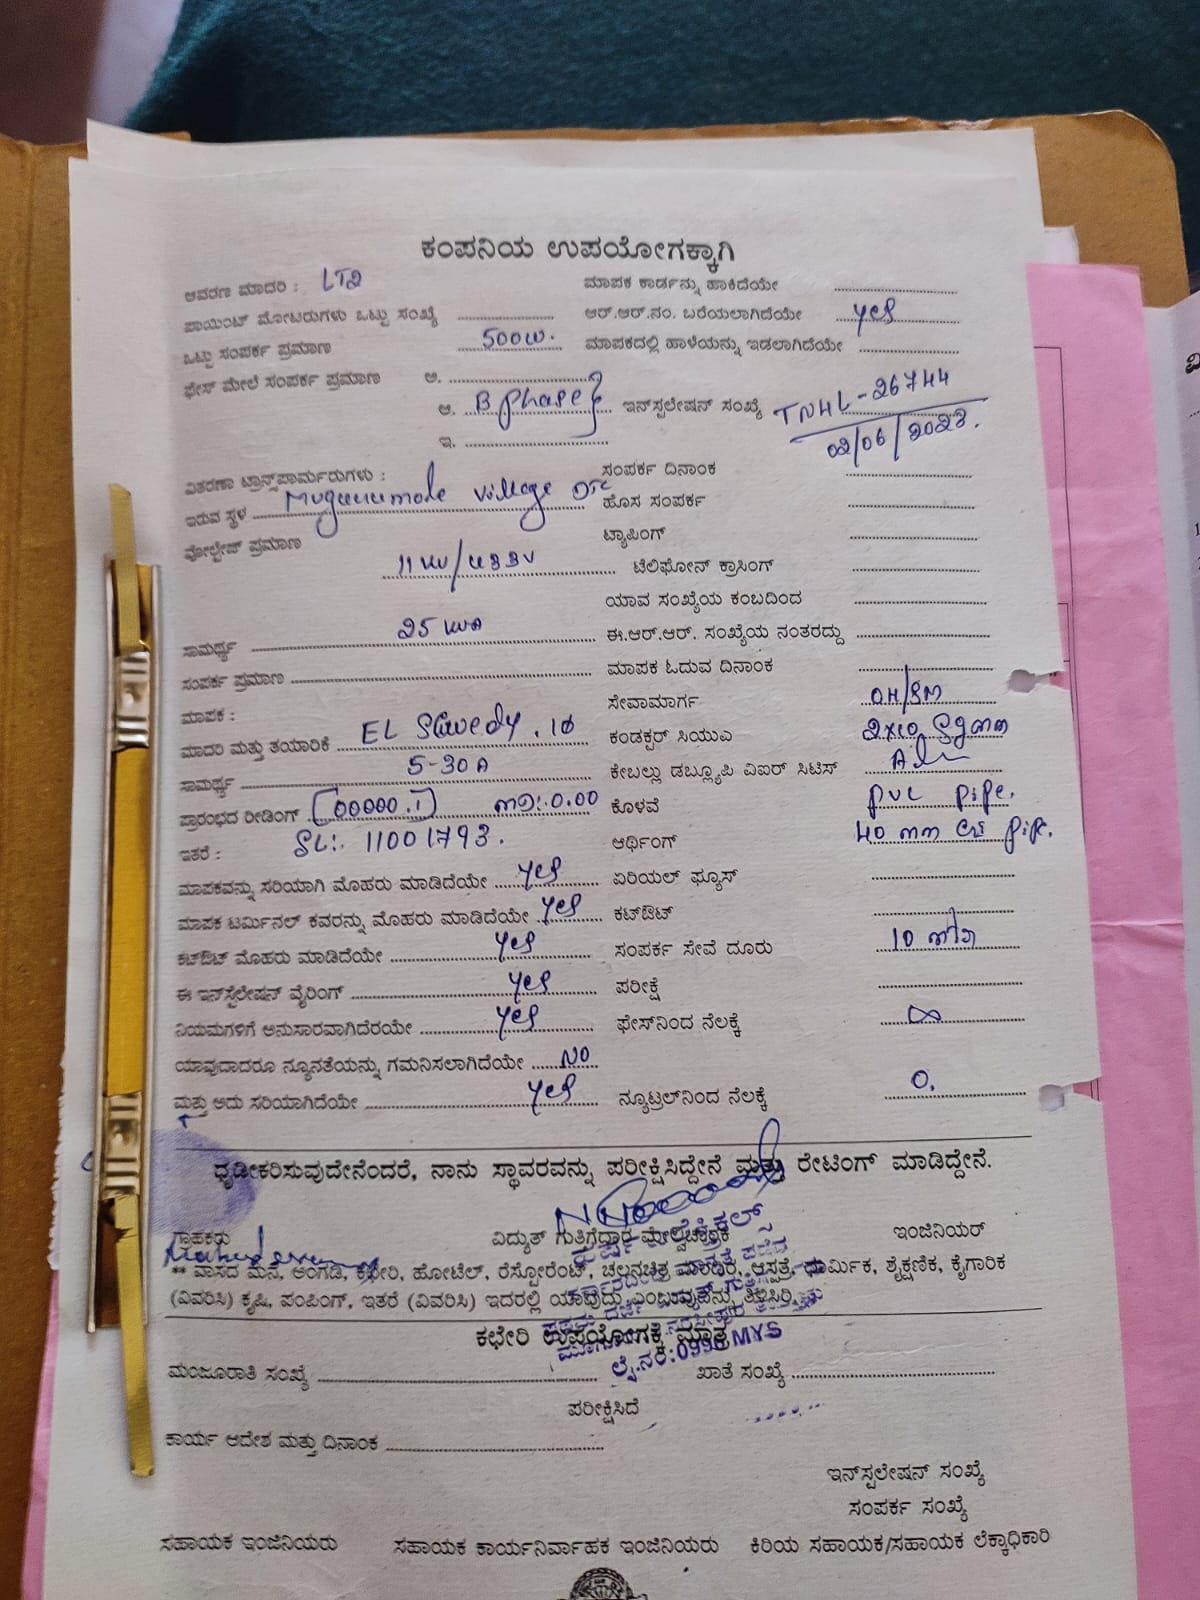 ಕಂಪನಿಯ ಉಪಯೋಗಕ್ಕಾಗಿ
ಆವರಣ ಮಾದರಿ : LT2 ಮಾಪಕ ಕಾರ್ಡನ್ನು ಹಾಕಿದೆಯೇ
ಪಾಯಿಂಟ್ ಮೋಟರುಗಳು ಒಟ್ಟು ಸಂಖ್ಯೆ ಆರ್.ಆರ್.ನಂ. ಬರೆಯಲಾಗಿದೆಯೇ yes
ಒಟ್ಟು ಸಂಪರ್ಕ ಪ್ರಮಾಣ 500W. ಮಾಪಕದಲ್ಲಿ ಹಾಳೆಯನ್ನು ಇಡಲಾಗಿದೆಯೇ
ಫೇಸ್ ಮೇಲೆ ಸಂಪರ್ಕ ಪ್ರಮಾಣ ಅ.
ಆ. B phase ಇನ್‌ಸ್ಪಲೇಷನ್ ಸಂಖ್ಯೆ TNHL-26744
ಇ. 02/06/2023.
ವಿತರಣಾ ಟ್ರಾನ್ಸ್‌ಪಾರ್ಮರುಗಳು : ಸಂಪರ್ಕ ದಿನಾಂಕ
ಇರುವ ಸ್ಥಳ village ಹೊಸ ಸಂಪರ್ಕ
ವೋಲ್ಟೇಜ್ ಪ್ರಮಾಣ ಟ್ಯಾಪಿಂಗ್
11 KV/433V ಟೆಲಿಫೋನ್ ಕ್ರಾಸಿಂಗ್
ಯಾವ ಸಂಖ್ಯೆಯ ಕಂಬದಿಂದ
ಸಾಮರ್ಥ್ಯ 25 KVA ಈ.ಆರ್.ಆರ್. ಸಂಖ್ಯೆಯ ನಂತರದ್ದು
ಸಂಪರ್ಕ ಪ್ರಮಾಣ ಮಾಪಕ ಓದುವ ದಿನಾಂಕ
ಮಾಪಕ : ಸೇವಾಮಾರ್ಗ OH/SM
ಮಾದರಿ ಮತ್ತು ತಯಾರಿಕೆ EL ಕಂಡಕ್ಟರ್ ಸಿಯುಎ
ಸಾಮರ್ಥ್ಯ 5-30A ಕೇಬಲ್ಲು ಡಬ್ಲ್ಯೂಪಿ ವಿಐರ್ ಸಿಟಿಸ್
ಪ್ರಾರಂಭದ ರೀಡಿಂಗ್ (00000.1) MD:0.00 ಕೊಳವೆ pvc pipe.
ಇತರೆ : SL:- 11001793. ಆರ್ಥಿಂಗ್ 40 mm GI pipe.
ಮಾಪಕವನ್ನು ಸರಿಯಾಗಿ ಮೊಹರು ಮಾಡಿದೆಯೇ yes ಏರಿಯಲ್ ಫ್ಯೂಸ್
ಮಾಪಕ ಟರ್ಮಿನಲ್ ಕವರನ್ನು ಮೊಹರು ಮಾಡಿದೆಯೇ yes ಕಟ್‌ಔಟ್
ಕಟ್‌ಔಟ್ ಮೊಹರು ಮಾಡಿದೆಯೇ yes ಸಂಪರ್ಕ ಸೇವೆ ದೂರು 10
ಈ ಇನ್‌ಸ್ಟಲೇಷನ್ ವೈರಿಂಗ್ yes ಪರೀಕ್ಷೆ
ನಿಯಮಗಳಿಗೆ ಅನುಸಾರವಾಗಿದೆರಯೇ yes ಫೇಸ್‌ನಿಂದ ನೆಲಕ್ಕೆ ∞
ಯಾವುದಾದರೂ ನ್ಯೂನತೆಯನ್ನು ಗಮನಿಸಲಾಗಿದೆಯೇ NO
ಮತ್ತು ಅದು ಸರಿಯಾಗಿದೆಯೇ yes ನ್ಯೂಟ್ರಲ್‌ನಿಂದ ನೆಲಕ್ಕೆ 0.
ಧೃಡೀಕರಿಸುವುದೇನೆಂದರೆ, ನಾನು ಸ್ಥಾವರವನ್ನು ಪರೀಕ್ಷಿಸಿದ್ದೇನೆ ಮತ್ತು ರೇಟಿಂಗ್ ಮಾಡಿದ್ದೇನೆ.
ಗ್ರಾಹಕರು ವಿದ್ಯುತ್ ಗುತ್ತಿಗೆದ್ದಾರ ಮೇಲ್ವಿಚಾರಕ ಇಂಜಿನಿಯರ್
** ವಾಸದ ಮನೆ, ಅಂಗಡಿ, ಕಛೇರಿ, ಹೋಟೆಲ್, ರೆಸ್ಟೋರೆಂಟ್, ಚಲನಚಿತ್ರ ಮಂದಿರ, ಆಸ್ಪತ್ರೆ, ಧಾರ್ಮಿಕ, ಶೈಕ್ಷಣಿಕ, ಕೈಗಾರಿಕ
(ವಿವರಿಸಿ) ಕೃಷಿ, ಪಂಪಿಂಗ್, ಇತರೆ (ವಿವರಿಸಿ) ಇದರಲ್ಲಿ ಯಾವುದು ಎಂಬುವುದನ್ನು ತಿಳಿಸಿರಿ
ಕಛೇರಿ ಉಪಯೋಗಕ್ಕೆ ಮಾತ್ರ
ಲೈ.ನಂ:0996 MYS
ಮಂಜೂರಾತಿ ಸಂಖ್ಯೆ ಖಾತೆ ಸಂಖ್ಯೆ
ಪರೀಕ್ಷಿಸಿದೆ
ಕಾರ್ಯ ಆದೇಶ ಮತ್ತು ದಿನಾಂಕ
ಇನ್‌ಸ್ಪಲೇಷನ್ ಸಂಖ್ಯೆ
ಸಂಪರ್ಕ ಸಂಖ್ಯೆ
ಸಹಾಯಕ ಇಂಜಿನಿಯರು ಸಹಾಯಕ ಕಾರ್ಯನಿರ್ವಾಹಕ ಇಂಜಿನಿಯರು ಕಿರಿಯ ಸಹಾಯಕ/ಸಹಾಯಕ ಲೆಕ್ಕಾಧಿಕಾರಿ